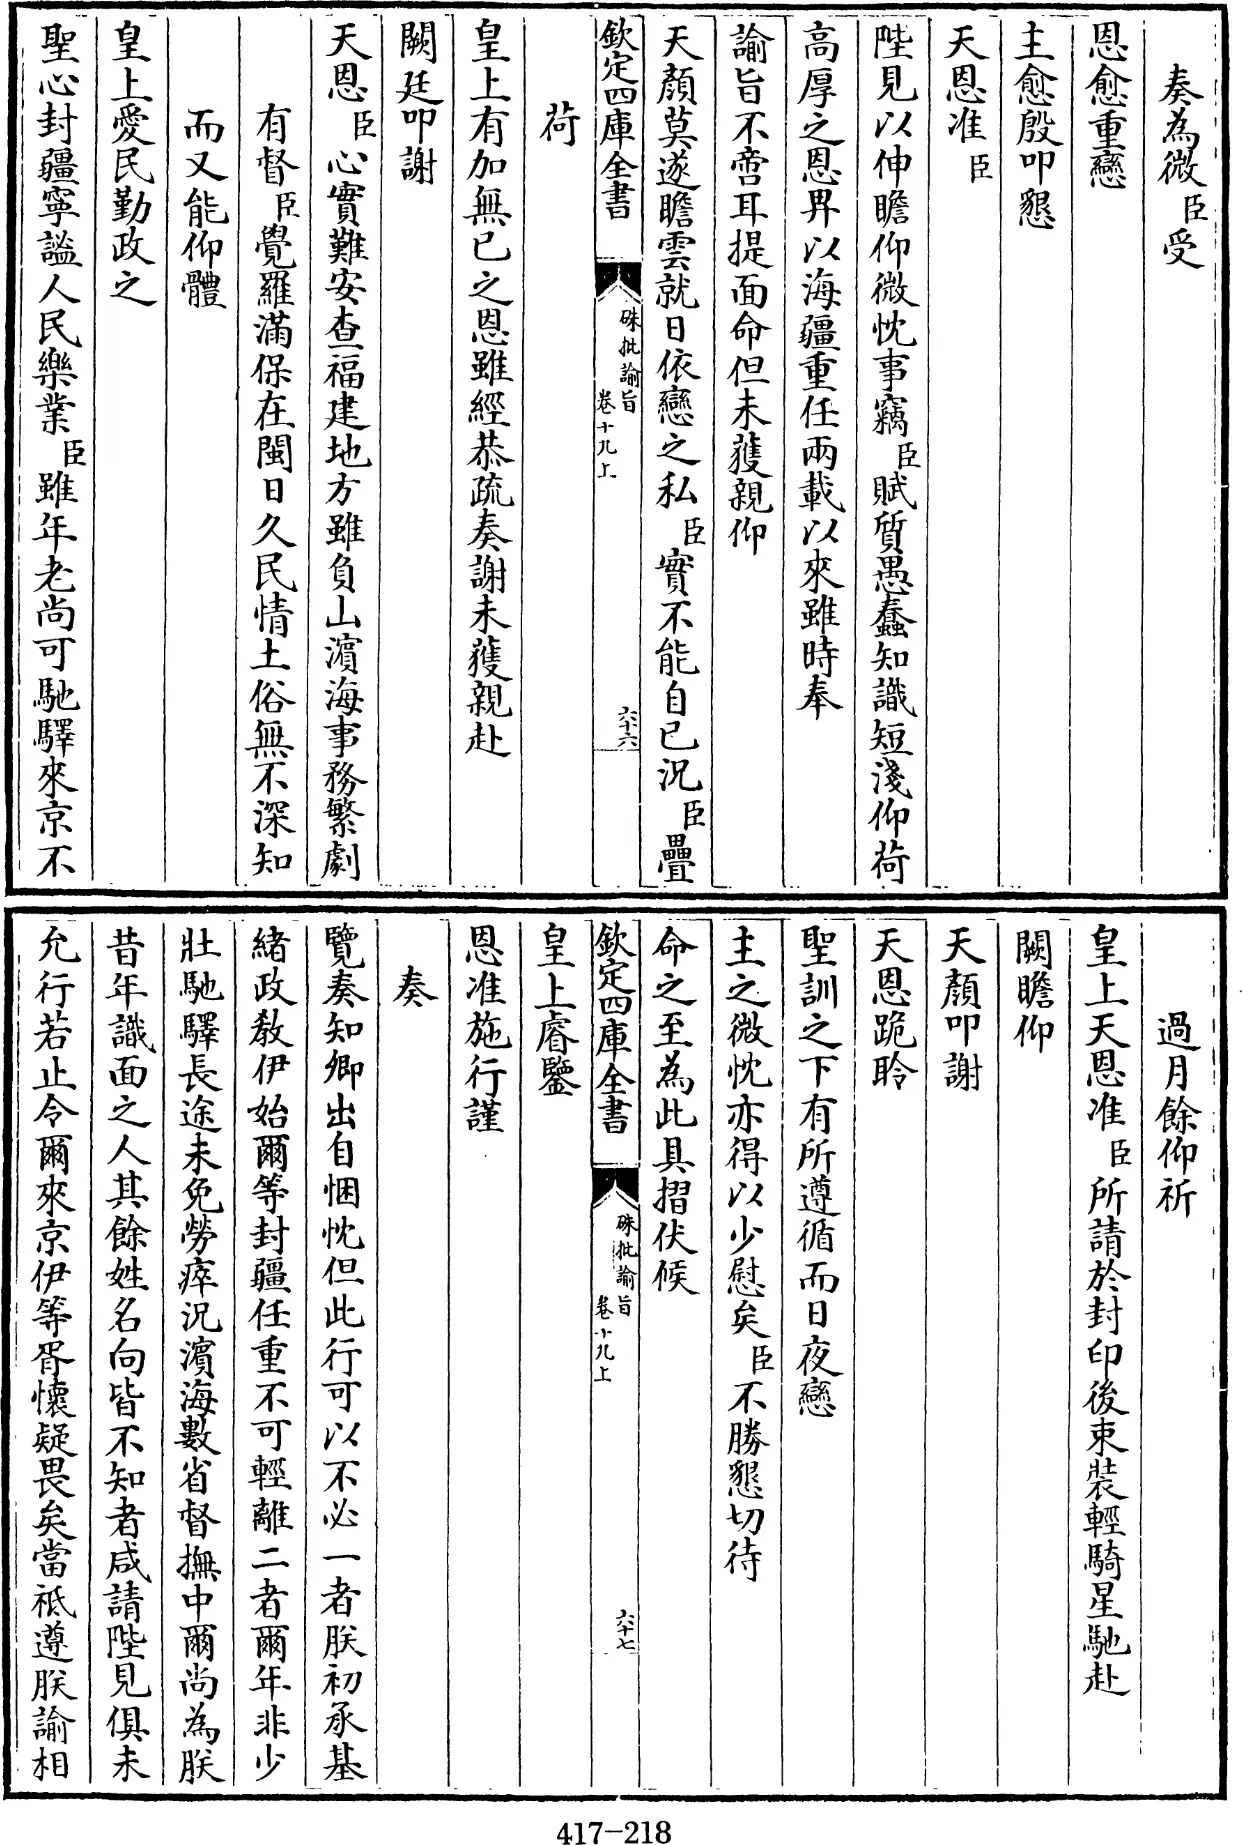 奏為微臣受
恩愈重戀
主愈殷叩懇
天恩准臣
陛見以伸瞻仰微忱事竊臣賦質愚蠢知識短淺仰荷
高厚之恩畀以海疆重任兩載以來雖時奉
諭旨不啻耳提面命但未獲親仰
天顏莫遂瞻雲就日依戀之私臣實不能自已況臣疊
欽定四庫全書
硃批諭旨
卷十九上
六十六
荷
皇上有加無已之恩雖經恭疏奏謝未獲親赴
闕廷叩謝
天恩臣心實難安查福建地方雖負山濱海事務繁劇
有督臣覺羅滿保在閩日久民情土俗無不深知
而又能仰體
皇上愛民勤政之
聖心封疆寧謐人民樂業臣雖年老尚可馳驛來京不
過月餘仰祈
皇上天恩准臣所請於封印後束裝輕騎星馳赴
闕瞻仰
天顏叩謝
天恩跪聆
聖訓之下有所遵循而日夜戀
主之微忱亦得以少慰矣臣不勝懇切待
命之至為此具摺伏候
欽定四庫全書
硃批諭旨
卷十九上
六十七
皇上睿鑒
恩准施行謹
奏
覽奏知卿出自悃忱但此行可以不必一者朕初承基
緒政教伊始爾等封疆任重不可輕離二者爾年非少
壯馳驛長途未免勞瘁況濱海數省督撫中爾尚為朕
昔年識面之人其餘姓名向皆不知者咸請陛見俱未
允行若止令爾來京伊等胥懷疑畏矣當祗遵朕諭相
417-218